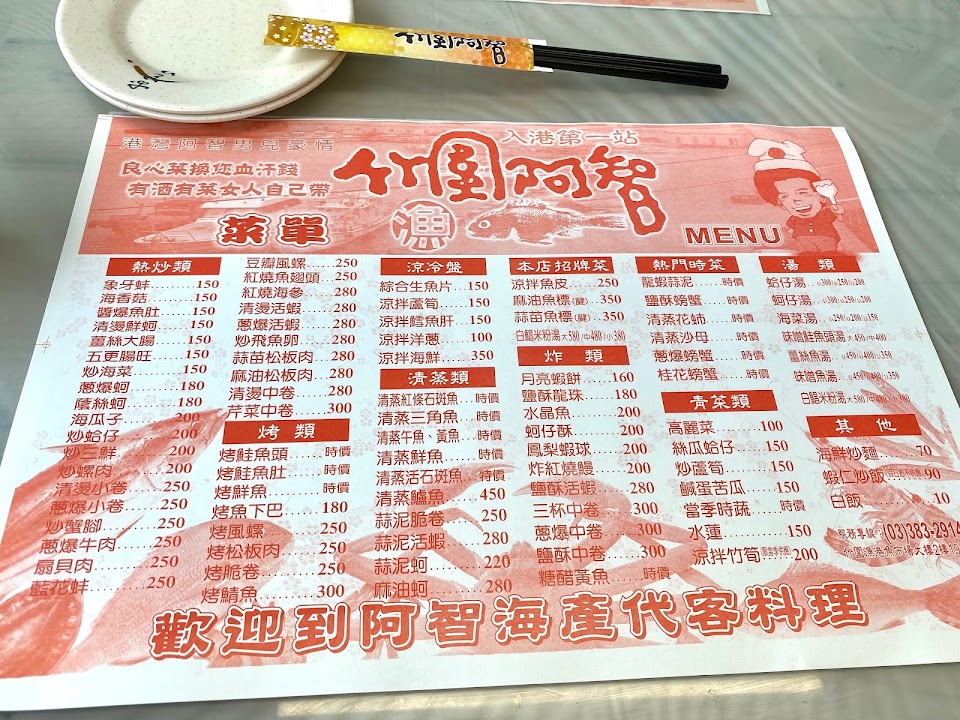 竹圍阿智
港灣阿智男兒豪情
入港第一站
良心菜換您血汗錢
有酒有菜女人自己帶
竹圍阿智
漁
菜單
MENU
熱炒類
象牙蚌......150
海香菇......150
醬爆魚肚......150
清燙鮮蚵......150
薑絲大腸......150
五更腸旺......150
炒海菜......150
蔥爆蚵......180
蔭絲蚵......180
海瓜子......200
炒蛤仔......200
炒三鮮......200
炒螺肉......200
清燙小卷......250
蔥爆小卷......250
炒蟹腳......250
蔥爆牛肉......250
扇貝肉......250
藍花蚌......250
豆瓣風螺...250
紅燒魚翅頭...250
紅燒海參...280
清燙活蝦...280
蔥爆活蝦...280
炒飛魚卵...280
蒜苗松板肉...280
麻油松板肉...280
清燙中卷...280
芹菜中卷...300
烤類
烤鮭魚頭......時價
烤鮭魚肚......時價
烤鮮魚......時價
烤魚下巴......180
烤風螺......250
烤松板肉......250
烤脆卷......250
烤鯖魚......300
涼冷盤
綜合生魚片...150
涼拌蘆筍...150
涼拌鱈魚肝...150
涼拌洋蔥...100
涼拌海鮮...350
清蒸類
清蒸紅條石斑魚...時價
清蒸三角魚...時價
清蒸午魚、黃魚...時價
清蒸鮮魚......時價
清蒸活石斑魚...時價
清蒸鱸魚......450
蒜泥脆卷......250
蒜泥活蝦......280
蒜泥蚵......220
麻油蚵......280
本店招牌菜
涼拌魚皮......250
麻油魚膘(鰎)350
蒜苗魚膘(鰎)350
白鯧米粉湯大580中480小380
炸類
月亮蝦餅......160
鹽酥龍珠......180
水晶魚......200
蚵仔酥......200
鳳梨蝦球......200
炸紅燒鰻......200
鹽酥活蝦......280
三杯中卷......300
蔥爆中卷......300
鹽酥中卷......300
糖醋黃魚......時價
熱門時菜
龍蝦蒜泥......時價
鹽酥螃蟹......時價
清蒸花蛖......時價
清蒸沙母......時價
蔥爆螃蟹......時價
桂花螃蟹......時價
青菜類
高麗菜......100
絲瓜蛤仔......150
炒蘆筍......150
鹹蛋苦瓜......150
當季時蔬......時價
水蓮......150
涼拌竹筍 200
湯類
蛤仔湯
蚵仔湯
海菜湯
味噌鮭魚頭湯大450中400
薑絲魚湯
味噌魚湯
白鯧米粉湯
其他
海鮮炒麵......70
蝦仁炒飯 90
白飯......10
服務專線:(03)383-2914
歡迎到阿智海產代客料理